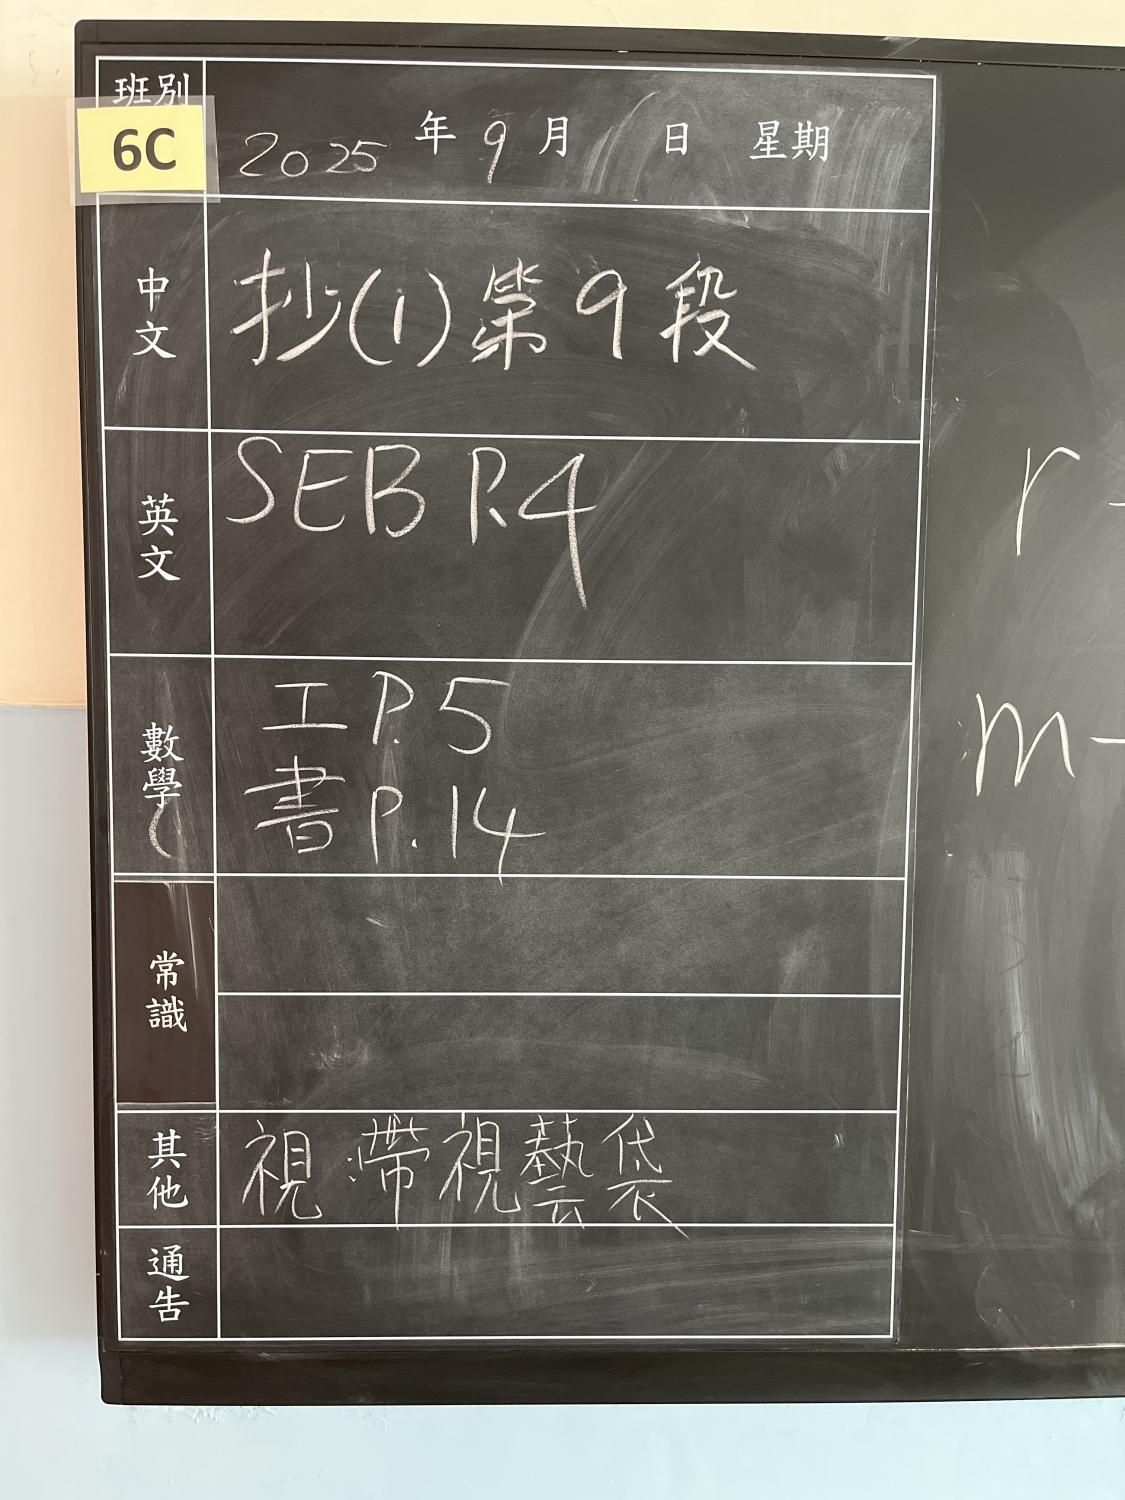 班別
6C
2025 年 9 月 日 星期
中文
抄(1)第9段
英文
SEB P.4
數學
工 P.5
書 P.14
常識
其他
視:帶視藝袋
通告
r -
m -